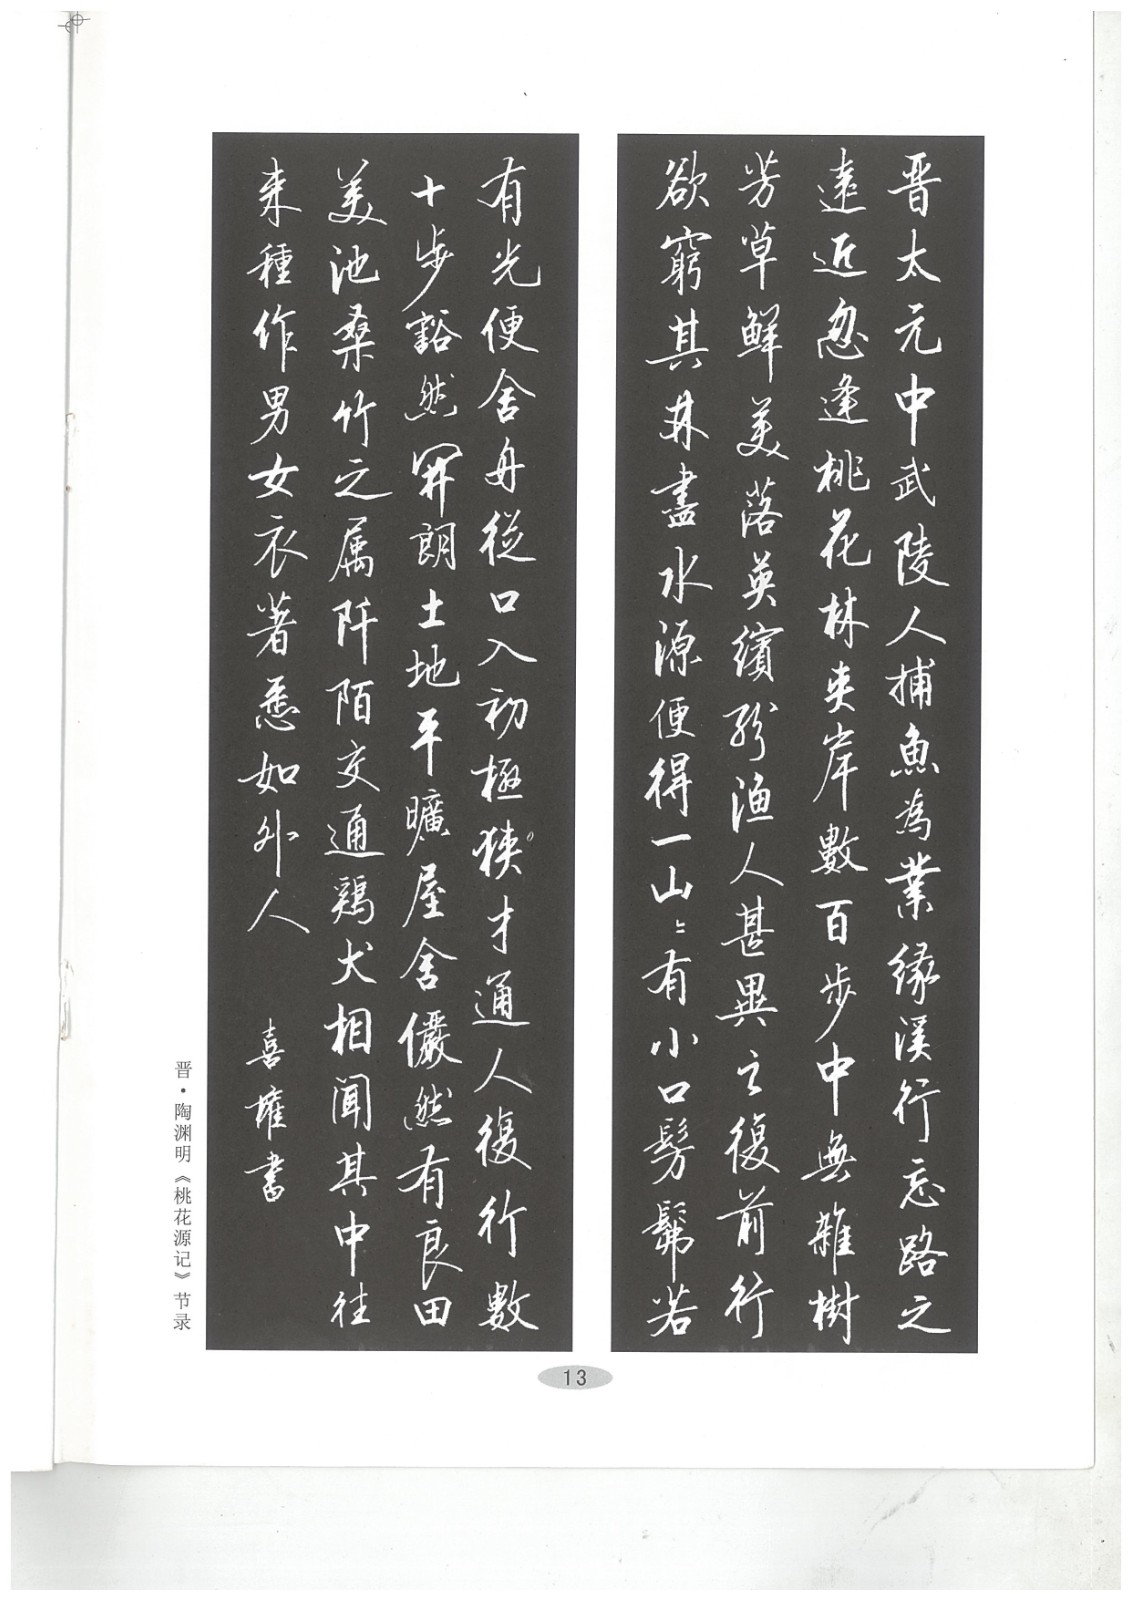 晋太元中武陵人捕魚為業緣溪行忘路之
遠近忽逢桃花林夹岸數百步中無雜樹
芳草鮮美落英繽紛渔人甚異之復前行
欲窮其林盡水源便得一山〻有小口髣髴若
有光便舍舟從口入初極狭才通人復行數
十步豁然開朗土地平曠屋舍儼然有良田
美池桑竹之属阡陌交通鶏犬相聞其中往
来種作男女衣著悉如外人
書
晋·陶渊明《桃花源记》节录
13